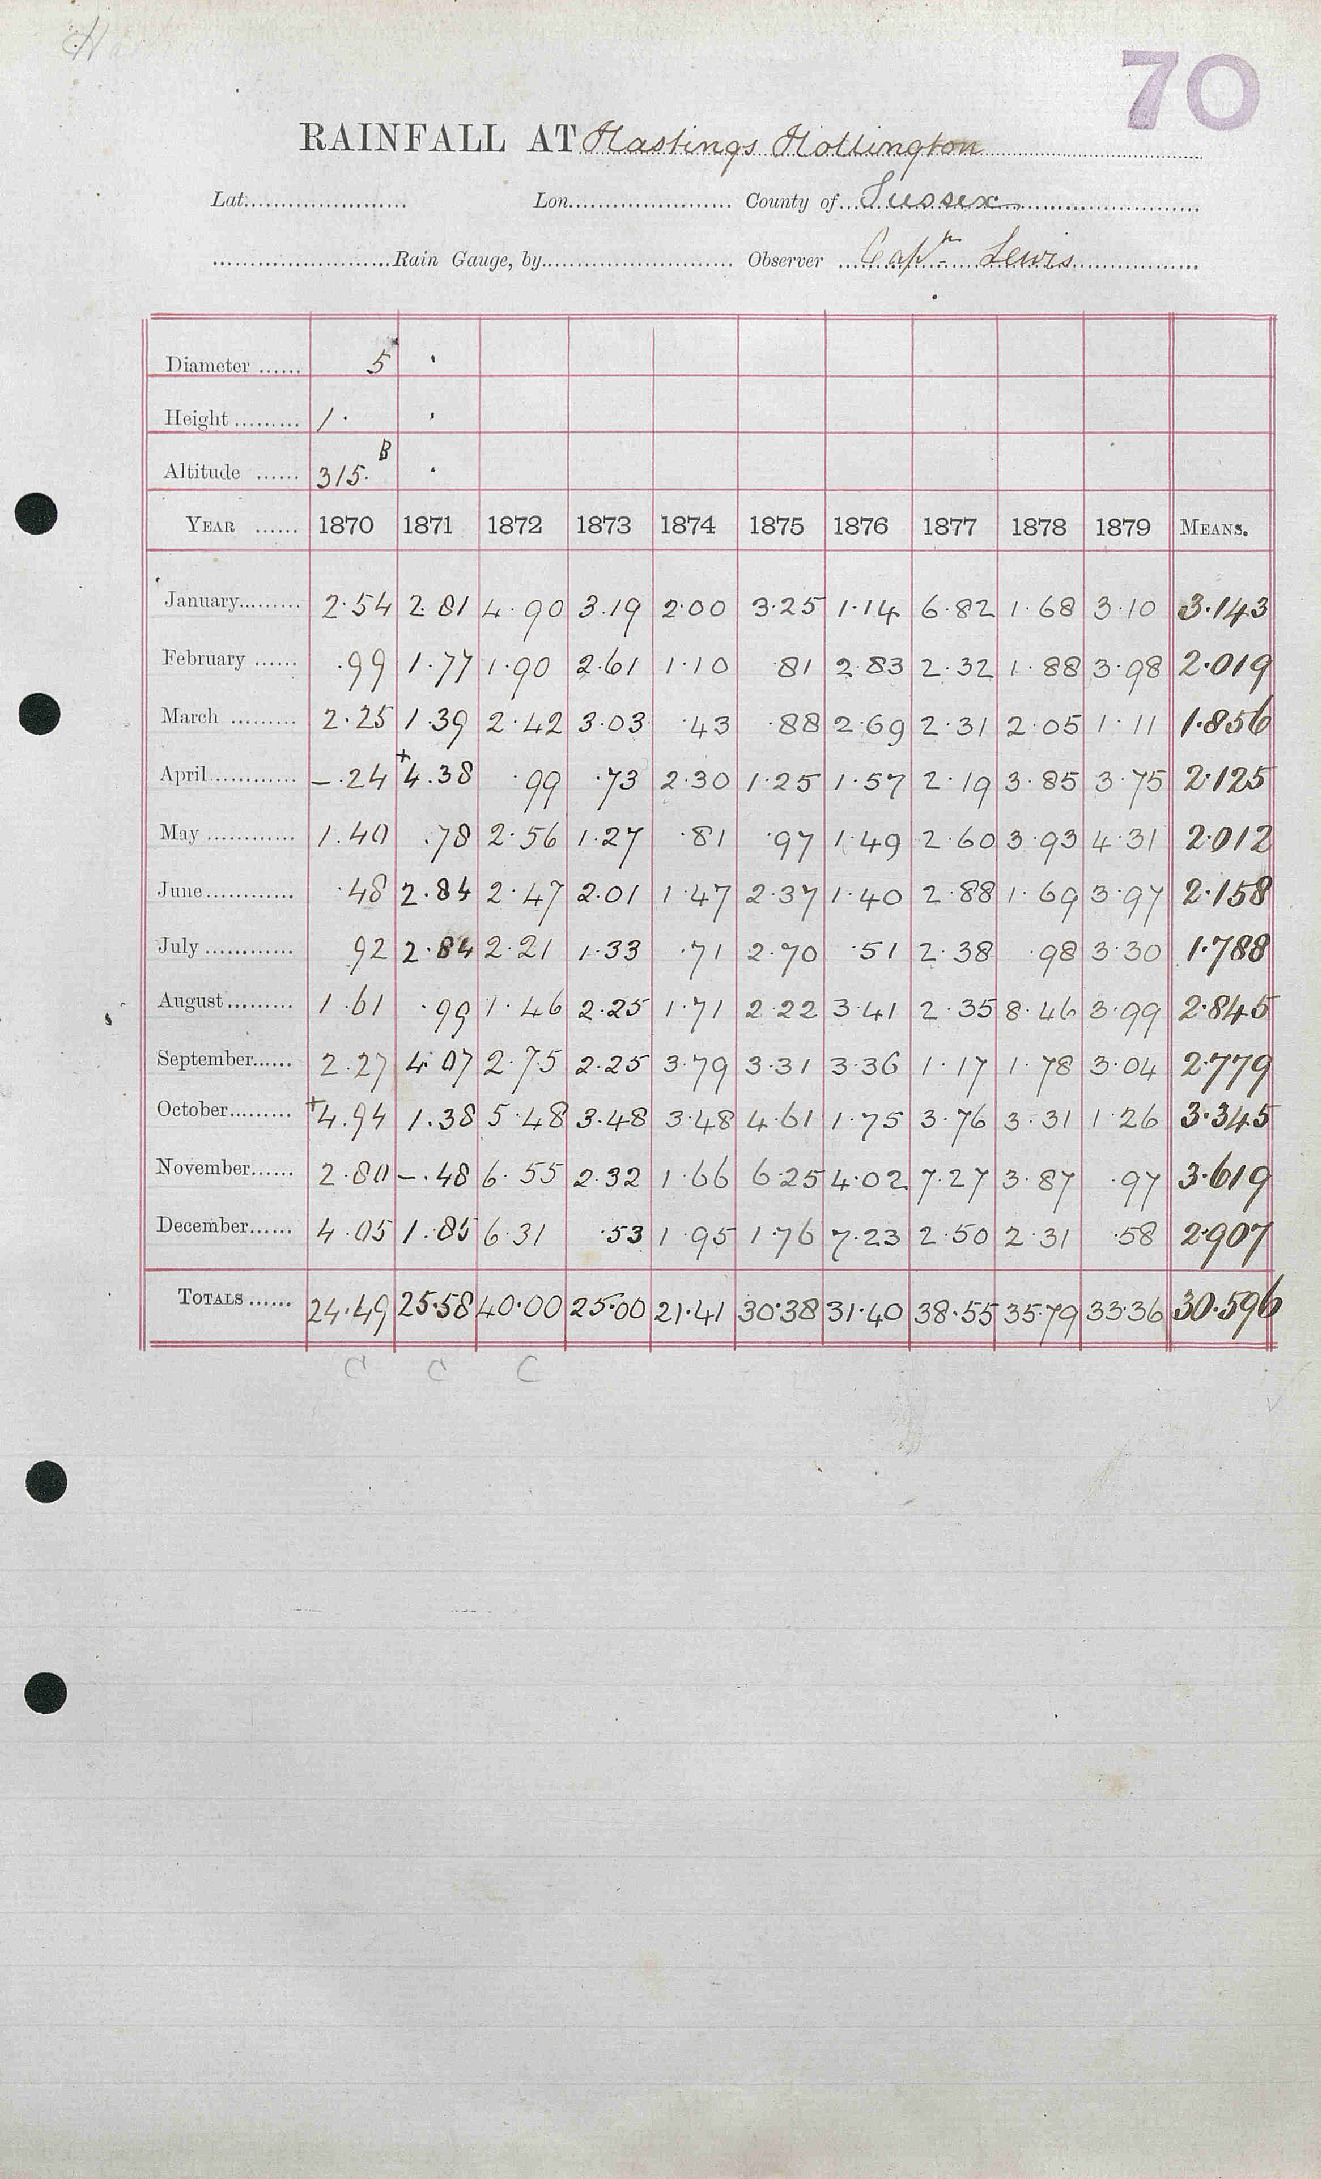 70
RAINFALL AT Hastings Hollington
Lat. Lon. County of Sussex
Rain Gauge, by Observer Captn Lewis
Diameter 5
Height 1.
Altitude 315. B
YEAR 1870 1871 1872 1873 1874 1875 1876 1877 1878 1879 MEANS.
January 2.54 2.81 4.90 3.19 2.00 3.25 1.14 6.82 1.68 3.10 3.143
February .99 1.77 1.90 2.61 1.10 .81 2.83 2.32 1.88 3.98 2.019
March 2.25 1.39 2.42 3.03 .43 .88 2.69 2.31 2.05 1.11 1.856
April -.24 +4.38 .99 .73 2.30 1.25 1.57 2.19 3.85 3.75 2.125
May 1.40 .78 2.56 1.27 .81 .97 1.49 2.60 3.93 4.31 2.012
June .48 2.84 2.47 2.01 1.47 2.37 1.40 2.88 1.69 3.97 2.158
July 92 2.84 2.21 1.33 .71 2.70 .51 2.38 .98 3.30 1.788
August 1.61 .99 1.46 2.25 1.71 2.22 3.41 2.35 8.46 3.99 2.845
September 2.27 4.07 2.75 2.25 3.79 3.31 3.36 1.17 1.78 3.04 2.779
October +4.94 1.38 5.48 3.48 3.48 4.61 1.75 3.76 3.31 1.26 3.345
November 2.80 -.48 6.55 2.32 1.66 6.25 4.02 7.27 3.87 .97 3.619
December 4.05 1.85 6.31 .53 1.95 1.76 7.23 2.50 2.31 .58 2.907
TOTALS 24.49 25.58 40.00 25.00 21.41 30.38 31.40 38.55 35.79 33.36 30.596
C C C